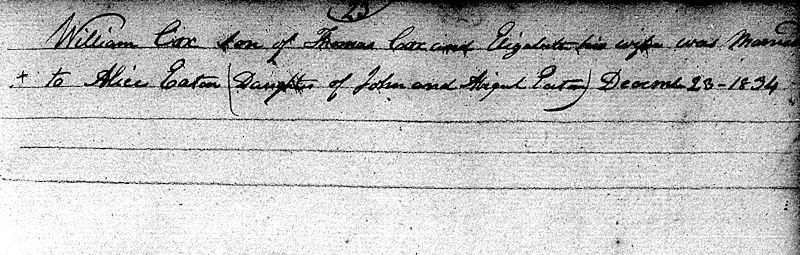 23
William Cox son of Thomas Cox and Elizabeth his wife was Married
+ to Alice Eaton (Daughter of John and Abigal Eaton) Decemb 23-1834